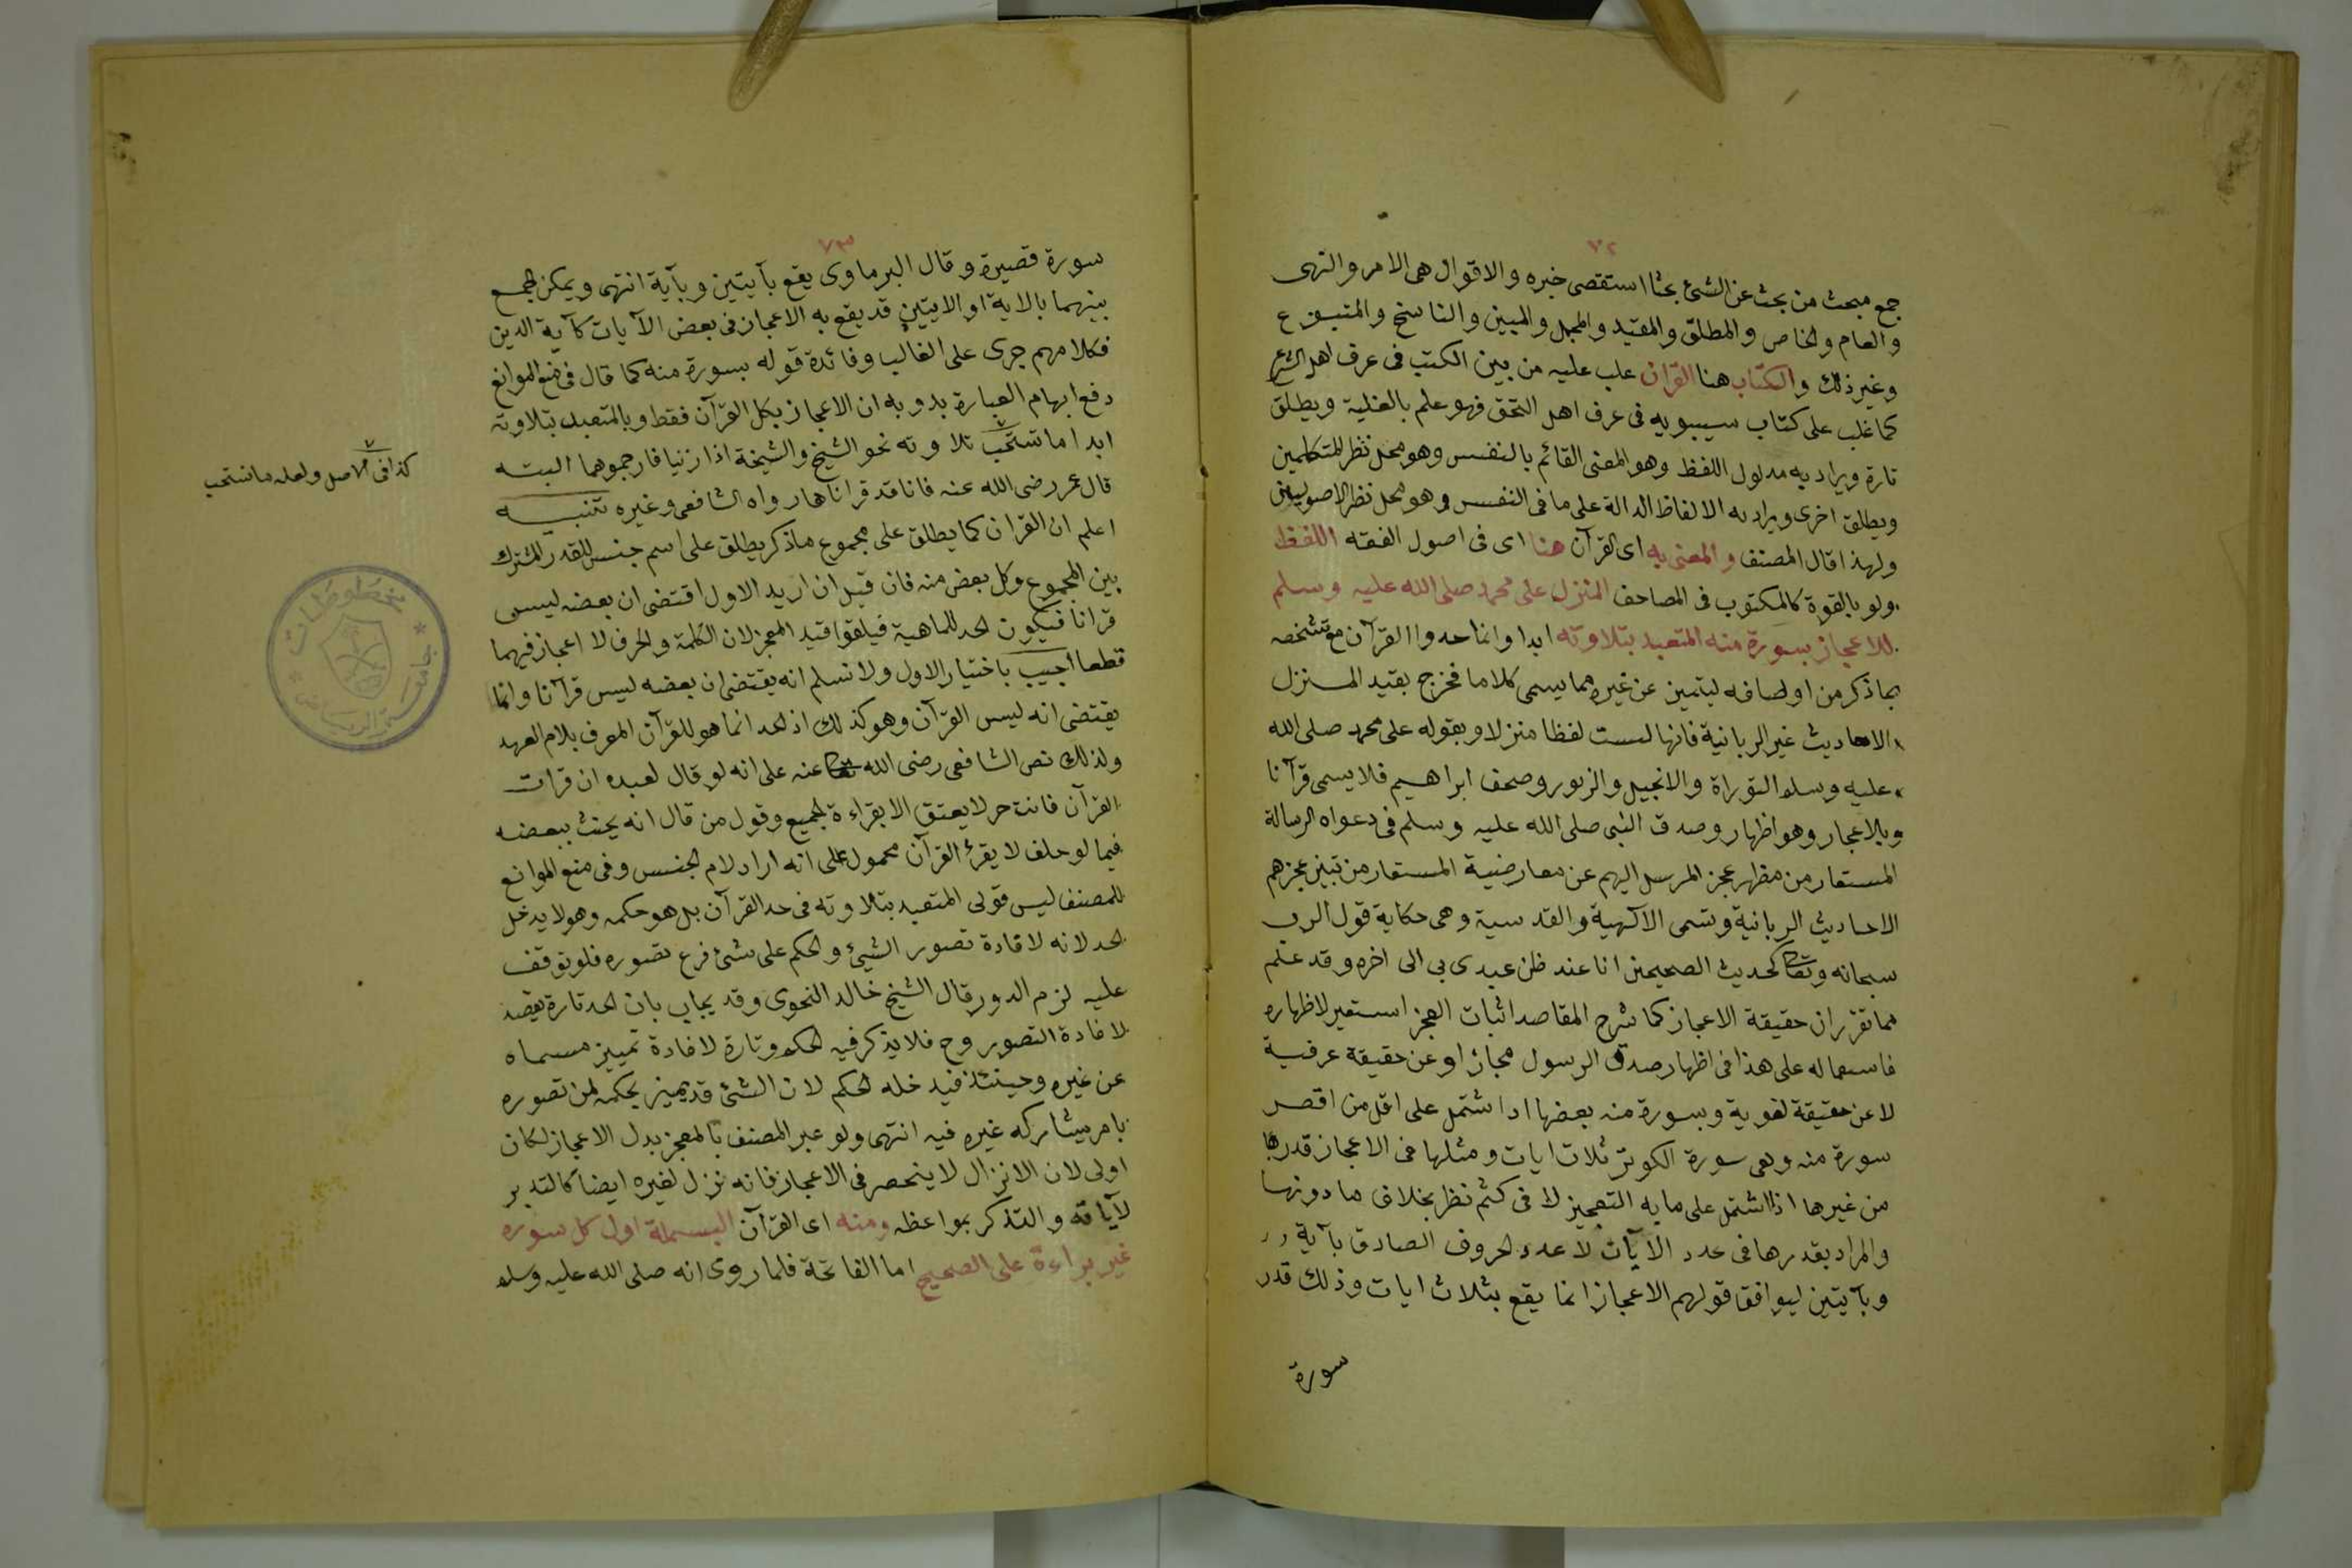 ٧٢
جمع مبحث من بحث عن الشئ بحثا استقصى خبره والاقوال هى الامر والنهى
والعام والخاص والمطلق والمقيد والمجمل والمبين والناسخ والمنسوخ
وغير ذلك والكتاب هنا القران غلب عليه من بين الكتب فى عرف اهل الشرع
كما غلب على كتاب سيبويه فى عرف اهل النحو فهو علم بالغلبة ويطلق
تارة ويراد به مدلول اللفظ وهو المعنى القائم بالنفس وهو محل نظر المتكلمين
ويطلق اخرى ويراد به الالفاظ الدالة على ما فى النفس وهو محل نظر الاصوليين
ولهذا قال المصنف والمعنى به اى القرآن هنا اى فى اصول الفقه اللفظ
ولو بالقوة كالمكتوب فى المصاحف المنزل على محمد صلى الله عليه وسلم
للاعجاز بسورة منه المتعبد بتلاوته ابدا وانما حدوا القرآن مع تشخصه
بما ذكر من اوصافه ليتميز عن غيره مما يسمى كلاما فخرج بقيد المنزل
الاحاديث غير الربانية فانها ليست لفظا منزلا وبقوله على محمد صلى الله
عليه وسلم التوراة والانجيل والزبور وصحف ابراهيم فلا يسمى قرآنا
وبالاعجاز وهو اظهار وصدق النبى صلى الله عليه وسلم فى دعواه الرسالة
المستعار من مظهر عجز المرسل اليهم عن معارضية المستعار من تبيين عجزهم
الاحاديث الربانية وتسمى الآلهية والقدسية وهى حكاية قول الرب
سبحانه وتعا كحديث الصحيحين انا عند ظن عبدى بى الى اخره وقد علم
مما تقرر ان حقيقة الاعجاز كما شرح المقاصد اثبات العجز استعير لاظهاره
فاستعماله على هذا فى اظهار صدق الرسول مجاز او عن حقيقة عرفية
لا عن حقيقة لغوية وبسورة منه بعضها اذا اشتمل على اقل من اقصر
سورة منه وهى سورة الكوثر ثلاث ايات ومثلها فى الاعجاز قدرها
من غيرها اذا اشتمل على ما به التعجيز لا فى كثم نظر بخلاف ما دونها
والمراد بقدرها فى عدد الآيات لا عدد الحروف الصادق بآية
وبآيتين ليوافق قولهم الاعجاز انما يقع بثلاث ايات وذلك قدر
سورة
٧٣
سورة قصيرة وقال البرماوى يقع بآيتين وبآية انتهى ويمكن الجمع
بينهما بالاية او الايتين قد يقع به الاعجاز فى بعض الآيات كآية الدين
فكلامهم جرى على الغالب وفائدة قوله بسورة منه كما قال فى منع الموانع
دفع ابهام العبارة بدوبه ان الاعجاز بكل القرآن فقط وبالمتعبد بتلاوته
ابدا ما تستحب تلاوته نحو الشيخ والشيخة اذا زنيا فارجموهما البتة
قال عمر رضى الله عنه فانا قد قراناها رواه الشافعى وغيره تنبيه
اعلم ان القران كما يطلق على مجموع ما ذكر يطلق على اسم جنس للقدر المشترك
بين المجموع وكل بعض منه فان قيل ان اريد الاول اقتضى ان بعضه ليس
قرانا فيكون الحد للماهية فيلغوا قيد المعجز لان الكلمة والحرف لا اعجاز فيهما
قطعا اجيب باختيار الاول ولا نسلم انه يقتضى ان بعضه ليس قرآنا وانما
يقتضى انه ليس القرآن وهو كذلك اذ الحد انما هو للقرآن المعرف بلام العهد
ولذلك نص الشافعى رضى الله تعا عنه على انه لو قال لعبده ان قرات
القرآن فانت حر لا يعتق الا بقراءة الجميع وقول من قال انه يحنث ببعضه
فيما لو حلف لا يقرئ القرآن محمول على انه اراد لام الجنس وفى منع الموانع
للمصنف ليس قولى المتعبد بتلاوته فى حد القرآن بل هو حكمه وهو لا يدخل
الحد لانه لافادة تصور الشيئ والحكم على شئ فرع تصوره فلو توقف
عليه لزم الدور قال الشيخ خالد النحوى وقد يجاب بان الحد تارة يقصد
لافادة التصور وح فلا يذكر فيه الحكم وتارة لافادة تمييز مسماه
عن غيره وحينئذ فيدخله الحكم لان الشئ قد يميز بحكمه لمن تصوره
بامر يشاركه غيره فيه انتهى ولو عبر المصنف بالمعجز بدل الاعجاز لكان
اولى لان الانزال لا ينحصر فى الاعجاز فانه نزل لغيره ايضا كالتدبر
لآياته والتذكر بمواعظه ومنه اى القرآن البسملة اول كل سورة
غير براءة على الصحيح اما الفاتحة فلما روى انه صلى الله عليه وسلم
٧
كذا فى الاصل ولعله ما نستحب
مخطوطات
جامعة الرياض